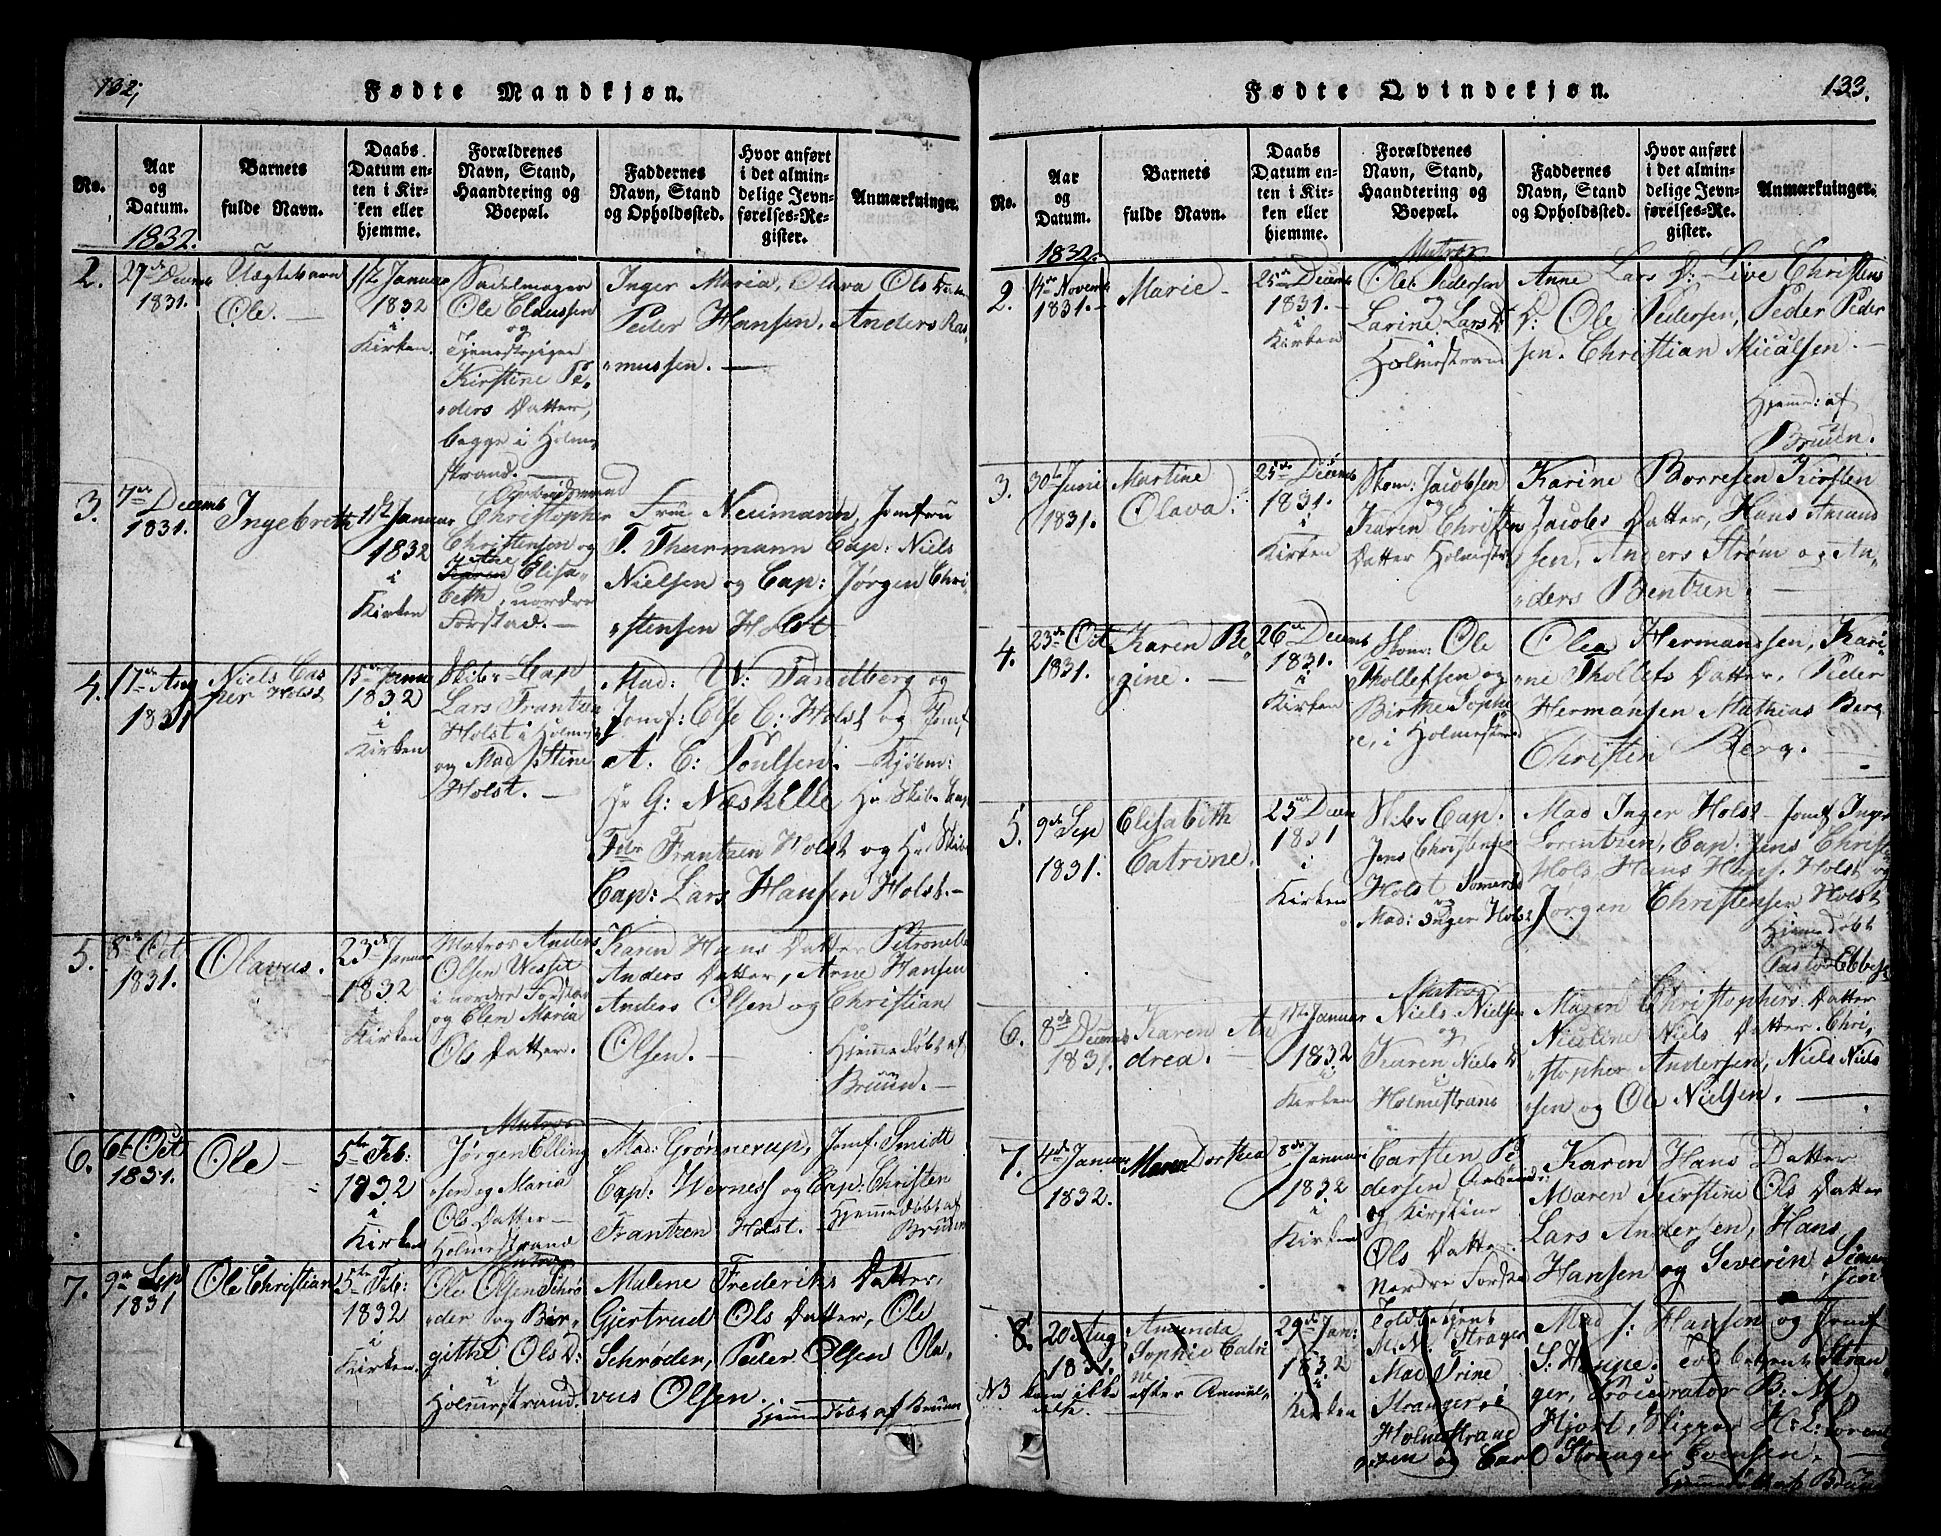 132,
Fødte Mandkjøn.
No.
Aar og Datum.
Barnets fulde Navn.
Daabs Datum enten i Kirken eller hjemme.
Forældrenes Navn, Stand, Haandtering og Boepæl.
Faddernes Navn, Stand og Opholdssted.
Hvor anført i det almindelige Jevnførelses-Register.
Anmærkninger.
1832.
2.
27de Decemb
1831.
Uægtebarn
Ole. —
1ste Januar
1832
i
Kirken.
Sadelmager
Ole Claussen
og
Tjenestepigen
Kirstine Pe-
ders Datter,
begge i Holme-
strand. —
Inger Maria, Olava Ols Datter
Peder Hansen, Anders Ras-
mussen. —
3.
7de Decemb
1831.
Ingebreth
1ste Januar
1832
i
Kirken
Arbeidsmand
Christopher
Christensen og
Elisa-
beth, nordre
Forstad. —
Frue Neumann, Jomfru
T. Thurmann Cap: Niels
Nielsen og Cap: Jørgen Chri-
stensen Holst
4.
17de Aug
1831
Niels Cas
per Holst
15de Janu
1832
i
Kirken
Skibs Cap
Lars Frantzen
Holst i Holmest
og Mad Stine
Holst. —
Mad: W: Sandberg og
Jomf: Else C: Holst og Jomf
A. C: Poulsen. — Kjøbm:
Hr G: Næskelle Hr Skibs Cap
Fdr Frantzen Holst og Hr. Skibs
Cap: Lars Hansen Holst. —
5.
8de Oct
1831.
Olavus.
23de Januar
1832
i
Kirken
Matros Anders
Olsen Wesset
i nordre Forstad
og Elen Maria
Ols Datter.
Karen Hans Datter Petronelle
Anders Datter, Arne Hansen
Anders Olsen og Christian
Olsen. —
Hjemmedøbt af
Bruun. —
6.
6te Oct
1831.
Ole —
5te Feb:
1832
i
Kirken
Matros
Jørgen Elling
sen og Maria
Ols Datter —
Holmestrand
Mad: Grønnerup, Jomf: Smidt
Cap: Werness og Cap: Christen
Frantzen Holst. —
Hjemmedøbt af
Bruun
7.
9de Sep
1831
Ole Christian
5te Feb:
1832
i
Kirken.
Matros
Ole Olsen Schrø
der og Bir-
gitthe Ols D:
Holmestrand.
Malene Frederiks Datter,
Gjertrud Ols Datter, Ole
Schrøder, Peder Olsen Ola-
vus Olsen.
Hjemmedøbt af Bruun
133.
Fødte Qvindekjøn.
No.
Aar og Datum.
Barnets fulde Navn.
Daabs Datum enten i Kirken eller hjemme.
Forældrenes Navn, Stand, Haandtering og Boepæl.
Faddernes Navn, Stand og Opholdssted.
Hvor anført i det almindelige Jevnførelses-Register.
Anmærkninger.
1832.
2.
Novemb
1831. —
Marie —
25de Decemb
1831. —
i
Kirken
Matros
Ole Pedersen
og
Larine Lars D
Holmestrand
Anne Lars D: Live Christens
D: Ole Pedersen, Peder Peder
sen. Christian Micalsen. —
Hjemmed: af
Bruun.
3.
30te Juni
1831.
Martine
Olava.
25de Decemb
1831.
i
Kirken
Skom: Jacobsen
og
Karen Christen
Datter Holmestr
Karine Borresen Kirsten
Jacobs Datter, Hans Amand
sen, Anders Strøm og An-
ders Bentzen. —
4.
23de Oct
1831.
Karen Re-
gine. —
26de Decemb
1831.
i
Kirken
Skom: Ole
Thollefsen og
Birthe Sophi
e, i Holmestrand
Olea Hermanssen, Kari-
ne Thollefs Datter. Peder
Hermansen Mathias Berg
Christen Berg. —
5.
9de Sep
1831.
Elisabeth
Catrine.
25de Decem
1831
i
Kirken
Skibs Cap.
Jens Christensen
Holst Sommers
og
Mad: Inger Holst
Mad Inger Holst — Jomf Inger
Lorentzen, Cap: Jens Christ
Hols, Hans Hans. Holst og
Jørgen Christensen Holst
Hjemmedøbt
af
Pastor Ebbesen
6.
8de Decemb
1831.
Karen An
drea. —
1ste Januar
1832
i
Kirken
Matros
Niels Nielsen
og
Karen Niels D
i
Holmestrand
Maren Christophers Datter
Nicoline Niels Datter. Chri-
stopher Andersen, Niels Niels
sen og Ole Nielsen. —
7.
4de Januar
1832.
Maren Dorthea
8de Januar
1832
i
Kirken
Carsten Pe
dersen Arbeids:
og Kirstine
Ols Datter.
Nordre Forstad
Karen Hans Datter
Maren Kirstine Ols Datter
Lars Andersen, Hans
Hansen og Severin Simon
sen
8.
20 Aug
1831.
Amunda
Sophie Catri
ne
29de Jan:
1832
i
Kirken
Toldbetjent
M. N. Stranger
Mad Trine
Stranger, i
Holmestrand
Mad J: Hansen og Jomf
S: Hoppe. Toldbetjent Stran
ger, Procurator B: M
Hjort, Skipper H: L: Lorent
zen og Carl Stranger Evensen. —
NB kom ikke efter Anmel-
delse.
Hjemmedøbt af Bruun